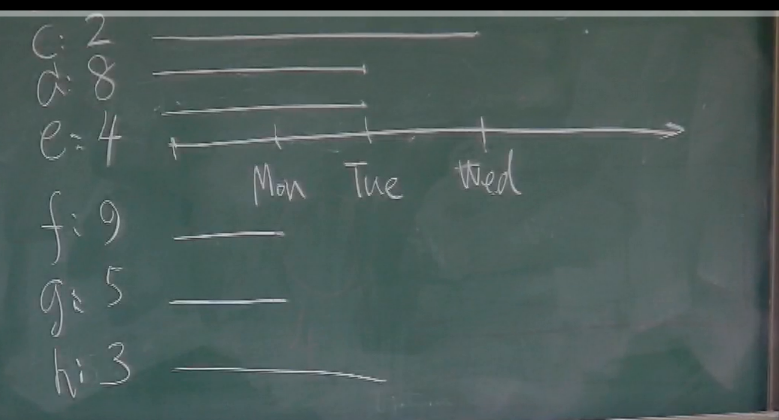 c: 2
d: 8
e: 4
Mon Tue Wed
f: 9
g: 5
h: 3